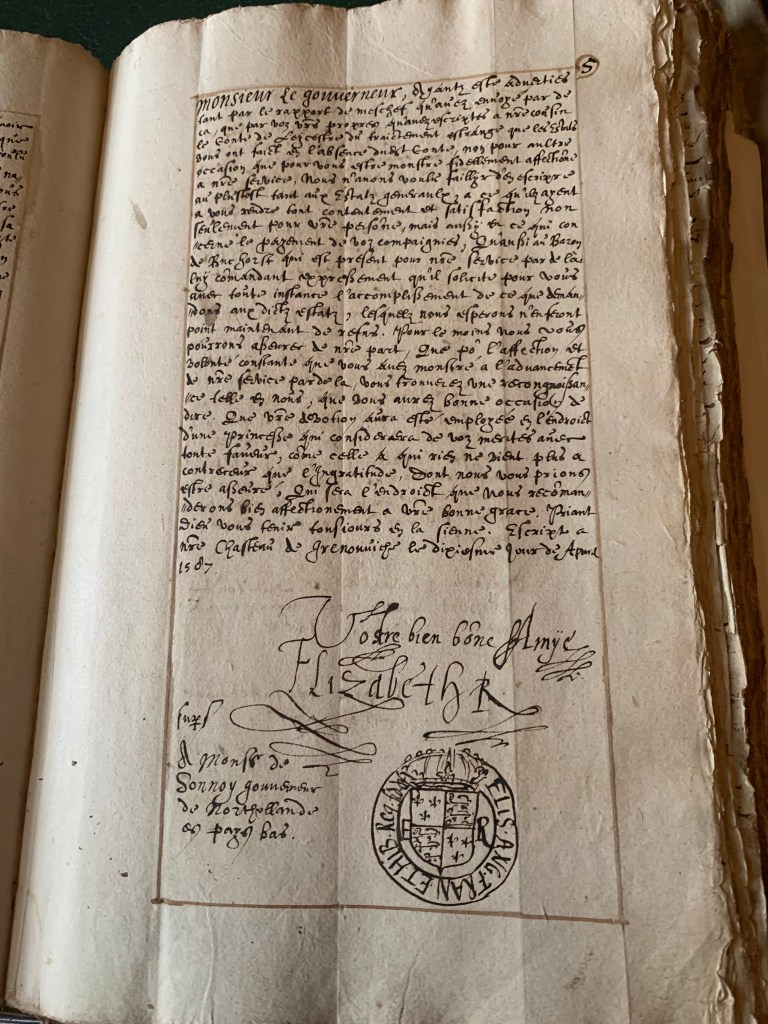 5
Monsieur le gouverneur, Ayantz este adverties
tant par le rapport de meschef qu'avez envoye par de
ca, que par voz vrēs propres quavez escriptes a nrē cousin
le Conte de Leycestre du traictement estrange que les Estats
vous ont faict en l'absence dudict Conte, non pour aultre
occasion que pour vous estre monstre fidellement affectiōne
a nrē service, Nous n'avons voulu faillyr d'en escripre
au plustost tant aux Estatz generaulx, a ce qu'ilz ayent
a vous rendre tout contentement et satisfaction Non
seulement pour vrē persōne, mais aussy en ce qui con
cerne le payement de voz compaignies, Qu'aussi au Baron
de Buchorst qui est present pour nrē service par de la
luy cōmandant expressement qu'il solicite pour vous
avec toute instance l'accomplissement de ce que deman-
dons aux dictz estatz, lesquelz nous esperons n'en feront
point maintenant de refus. Pour le moins vous vous
pourrons asseurer de nrē part, Que po^r l'affection et
volonte constante que vous avez monstre a l'advancemēt
de nrē service par de la, vous trouverez une recongnoissan-
ce telle en nous, que vous aurez bonne occasion de
dire, Que vrē devotion aura esté employée en l'endroict
d'une Princesse qui considerera de voz merites avec
toute faveur, cōme celle a qui rien ne vient plus a
contrecœur que l'Ingratitude, Dont nous vous prions
estre asseuré, Qui sera l'endroict que nous recōman-
derons bien affectionement a vrē bonne grace. Priant
Dieu vous tenir tousiours en la sienne. Escript a
nrē Chasteau de Grenouviche le dixiesme Jour de Apvril
1587
Vostre bien bōne Amye
Elizabeth R
A Monsr de
Sonnoy gouverneur
de Northollande
es pays bas.
ELIS. ANG. FRAN. ET HIB. Regina
E R